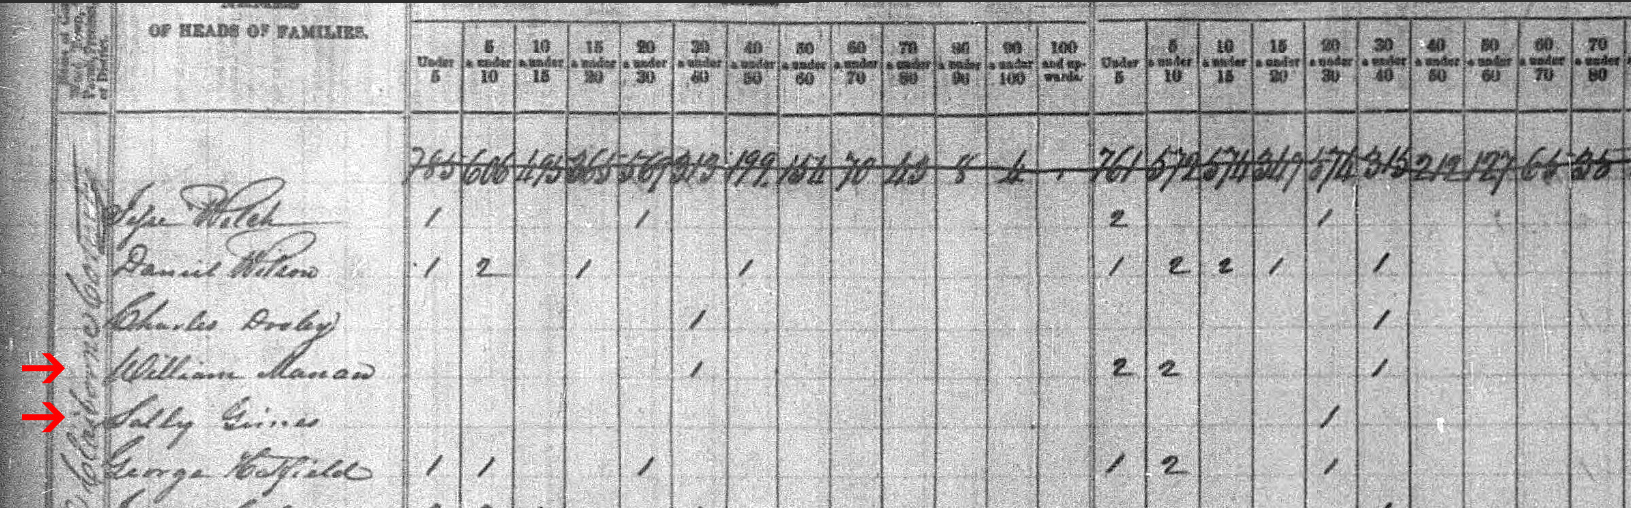 NAMES
OF HEADS OF FAMILIES.
Under 5 | 5 a under 10 | 10 a under 15 | 15 a under 20 | 20 a under 30 | 30 a under 40 | 40 a under 50 | 50 a under 60 | 60 a under 70 | 70 a under 80 | 80 a under 90 | 90 a under 100 | 100 and upwards. | Under 5 | 5 a under 10 | 10 a under 15 | 15 a under 20 | 20 a under 30 | 30 a under 40 | 40 a under 50 | 50 a under 60 | 60 a under 70 | 70 a under 80
Claiborne County
785 606 495 365 569 313 199 154 70 43 8 4 761 572 574 349 574 315 212 127 65 35
Jesse Welch 1 1 2 1
Daniel Wilson 1 2 1 1 1 2 2 1 1
Charles Dooley 1 1
William Manan 1 2 2 1
Sally Grimes 1
George Hatfield 1 1 1 1 2 1